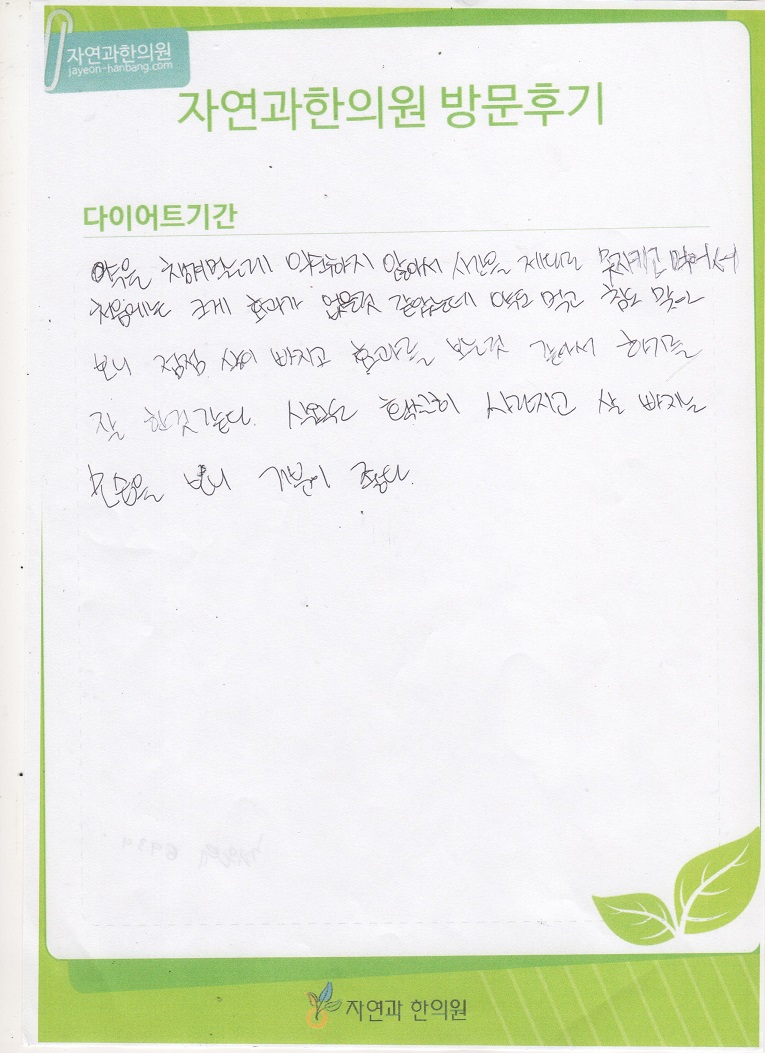 자연과한의원
jayeon-hanbang.com
자연과한의원 방문후기
다이어트기간
약을 챙겨먹는데 익숙하지 않아서 시간을 제대로 못지키고 먹어서
처음에는 크게 효과가 없을것 같았는데 약도 먹고 침도 맞아
보니 점점 살이 빠지고 효과를 보는것 같아서 하기를
잘 한것같다. 식욕도 확실히 사라지고 살 빠지는
모습을 보니 기분이 좋다.
자연과 한의원